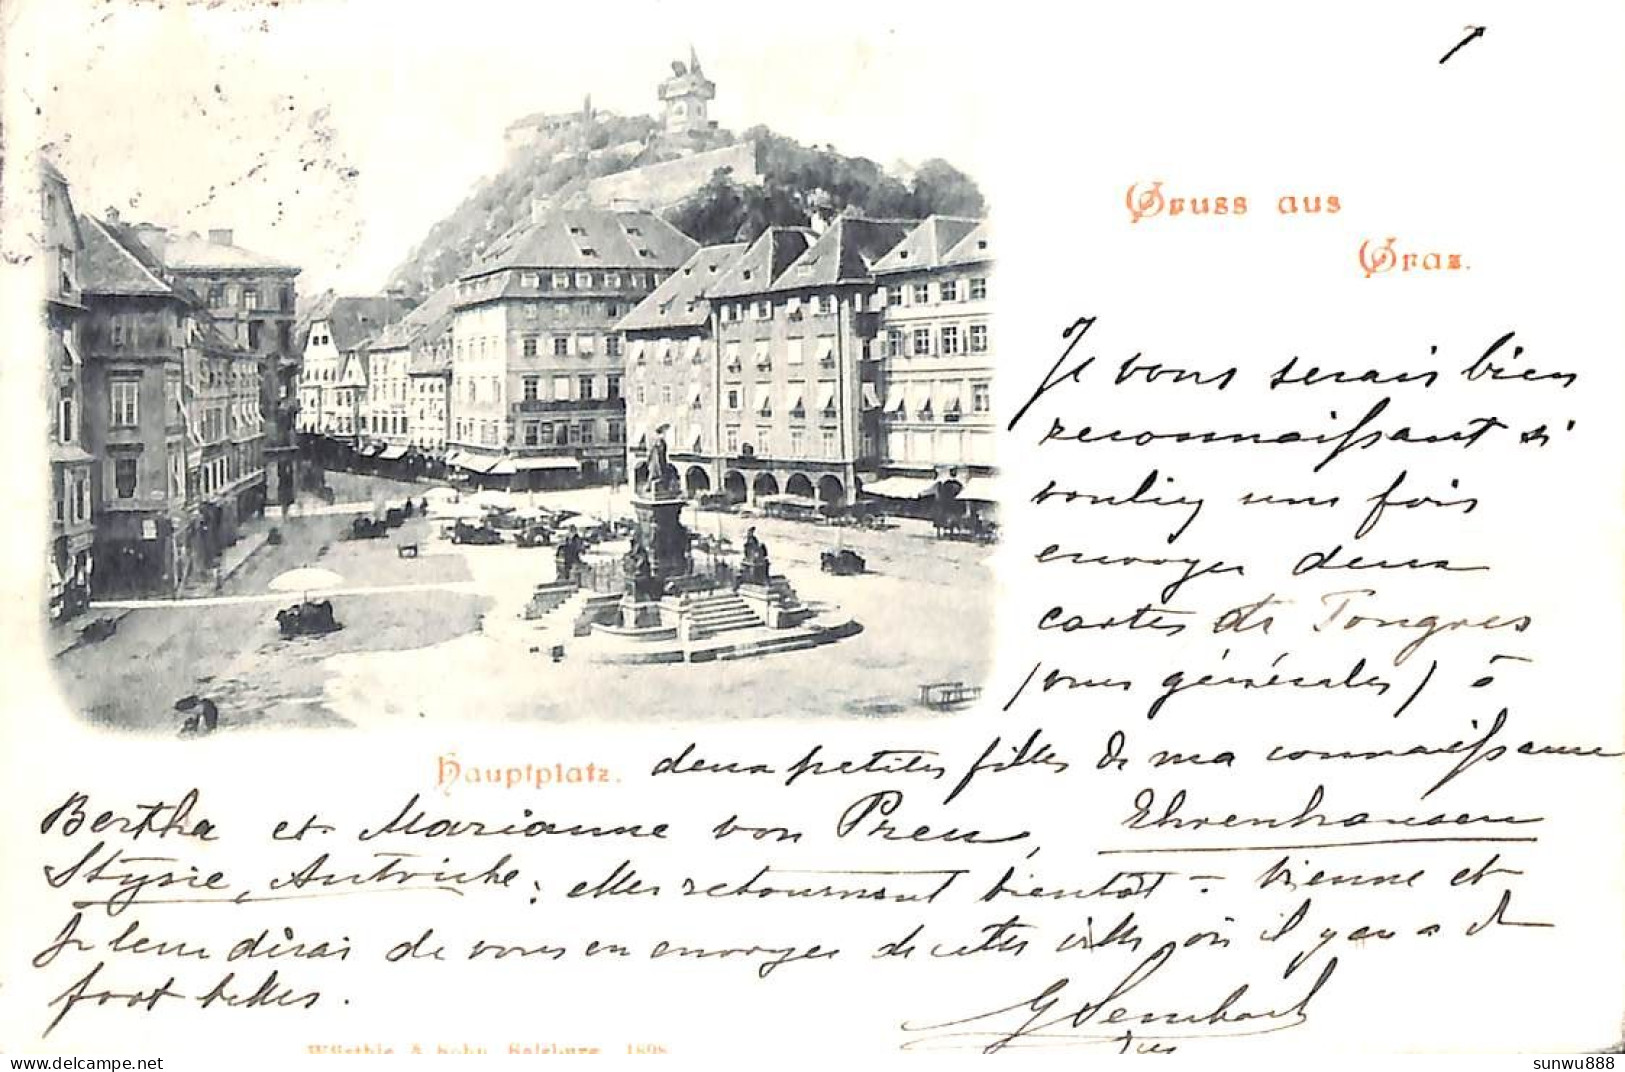 Gruss aus
Graz.
Je vous serais bien
reconnaissant si
vouliez une fois
envoyer deux
cartes de Tongres
(vues générales) à
Hauptplatz.
deux petites filles de ma connaissance
Bertha et Marianne von Preu, Ehrenhausen
Styrie, Autriche; elles retournent bientôt - Vienne et
je leur dirai de vous en envoyer de cette ville, où il y en a de
fort belles.
G Sembach
Würthle & Sohn, Salzburg, 1898
www.delcampe.net
sunwu888